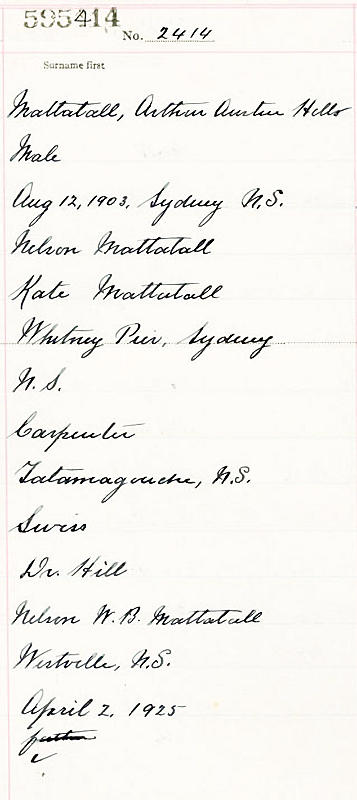 595414
No. 2414
Surname first
Mattatall, Arthur Austin Hills
Male
Aug 12, 1903, Sydney N.S.
Nelson Mattatall
Kate Mattatall
Whitney Pier, Sydney
N.S.
Carpenter
Tatamagouche, N.S.
Swiss
Dr. Hill
Nelson W. B. Mattatall
Westville, N.S.
April 2, 1925
father